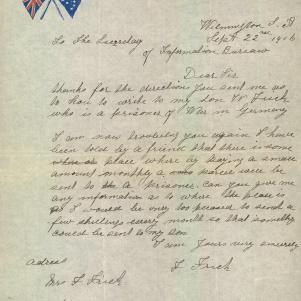 Wilmington S. A
Sept 22nd 1916
To The Secretary
of Information Bureau
Dear Sir
thanks for the directions you sent me as
to how to write to my son W Frick
who is a prisoner of War in Germany
I am now troubling you again I have
been told by a friend that there is some
place where by paying a small
amount monthly a parcel were be
sent to a prisoner. can you give me
any information as to where the place is
as I would be only too pleased to send a
few shillings every month so that something
could be sent to my son
I am Yours very sincerely
F Frick
adress
Mrs F Frick